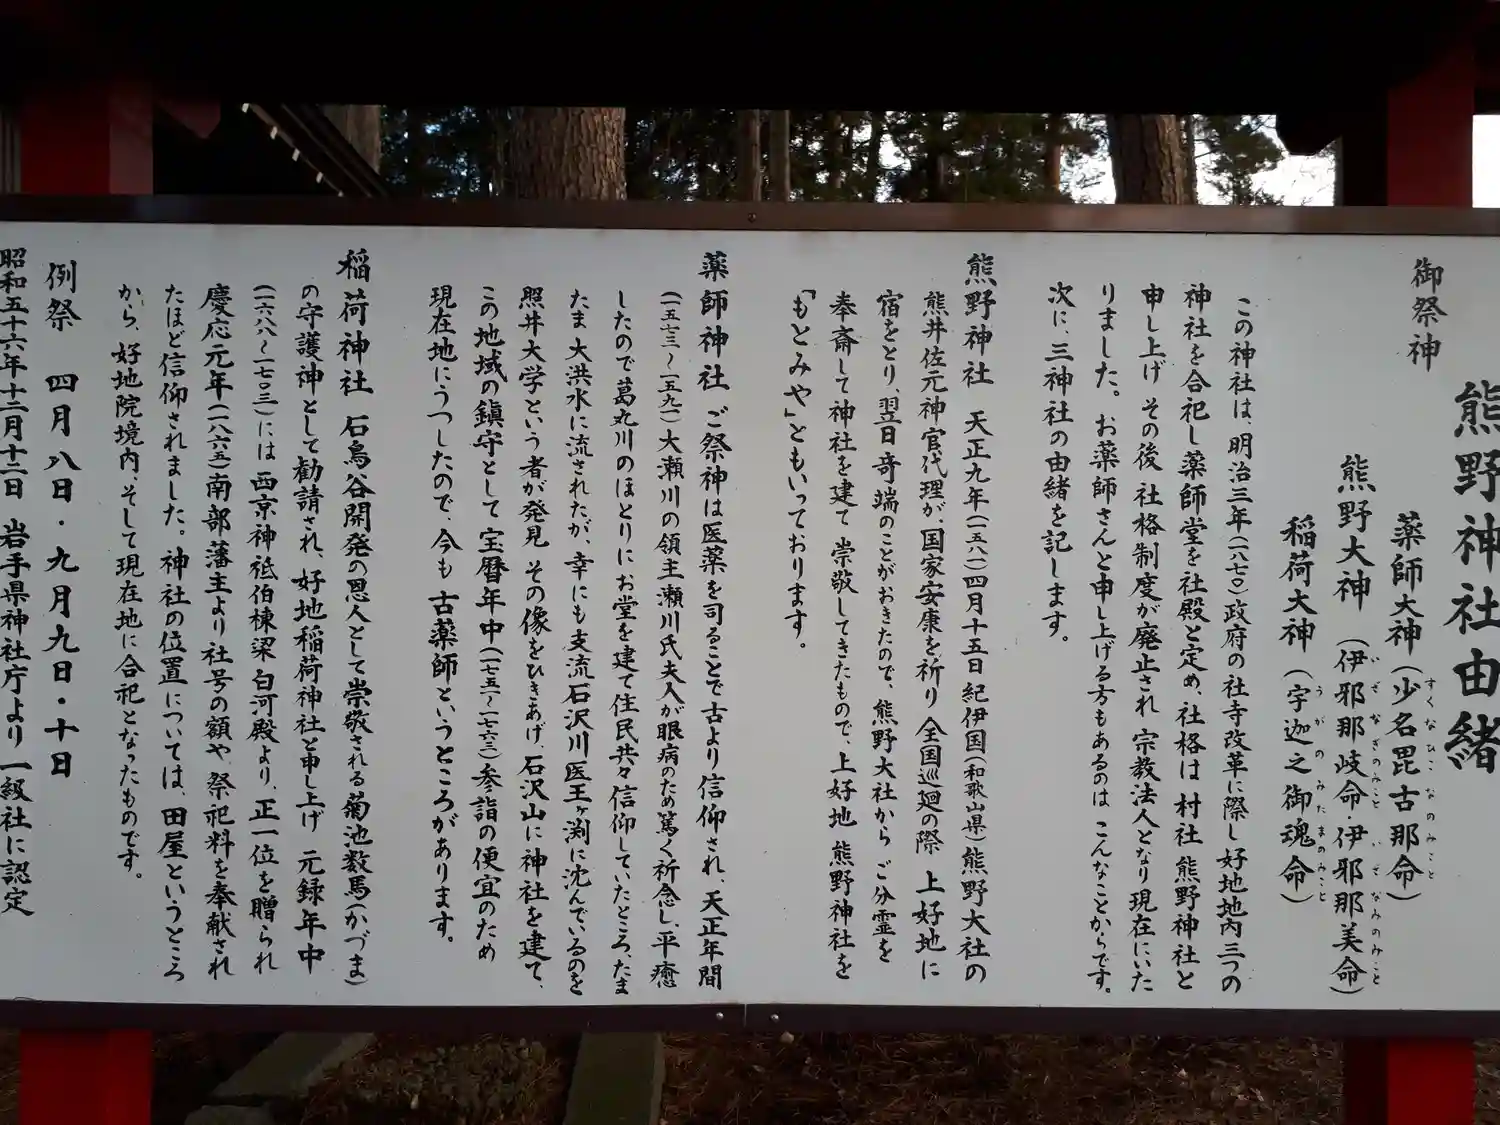 熊野神社由緒
御祭神
薬師大神(少名毘古那命)
すくなひこなのみこと
熊野大神(伊邪那岐命・伊邪那美命)
いざなぎのみこと いざなみのみこと
稲荷大神(宇迦之御魂命)
うがのみたまのみこと
この神社は、明治三年(一八七〇)政府の社寺改革に際し好地地内三つの
神社を合祀し薬師堂を社殿と定め、社格は村社熊野神社と
申し上げその後社格制度が廃止され宗教法人となり現在にいた
りました。お薬師さんと申し上げる方もあるのはこんなことからです。
次に、三神社の由緒を記します。
熊野神社 天正九年(一五八一)四月十五日紀伊国(和歌山県)熊野大社の
熊井佐元神官代理が、国家安康を祈り全国巡廻の際上好地に
宿をとり、翌日奇端のことがおきたので、熊野大社からご分霊を
奉斎して神社を建て崇敬してきたもので、上好地熊野神社を
「もとみや」ともいっております。
薬師神社 ご祭神は医薬を司ることで古より信仰され、天正年間
(一五七三〜一五九一)大瀬川の領主瀬川氏夫人が眼病のため篤く祈念し、平癒
したので葛丸川のほとりにお堂を建て住民共々信仰していたところ、たま
たま大洪水に流されたが、幸にも支流石沢川医王ヶ渕に沈んでいるのを
照井大学という者が発見その像をひきあげ、石沢山に神社を建て、
この地域の鎮守として宝暦年中(一七五一〜一七六三)参詣の便宜のため
現在地にうつしたので、今も古薬師というところがあります。
稲荷神社 石鳥谷開発の恩人として崇敬される菊池数馬(かづま)
の守護神として勧請され、好地稲荷神社と申し上げ 元録年中
(一六八八〜一七〇三)には西京神祗伯棟梁白河殿より、正一位を贈られ
慶応元年(一八六五)南部藩主より社号の額や祭祀料を奉献され
たほど信仰されました。神社の位置については、田屋というところ
から、好地院境内、そして現在地に合祀となったものです。
例祭 四月八日・九月九日・十日
昭和五十六年十二月十二日 岩手県神社庁より一級社に認定